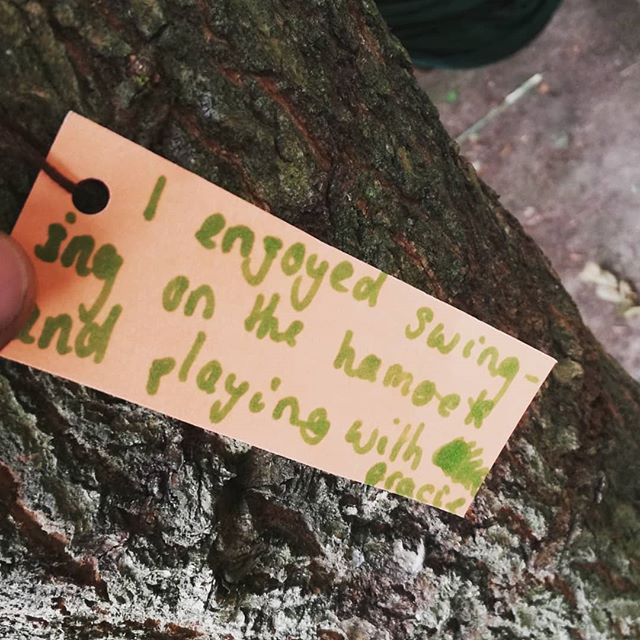 I enjoyed swing-
ing on the hamock
and playing with
gracie